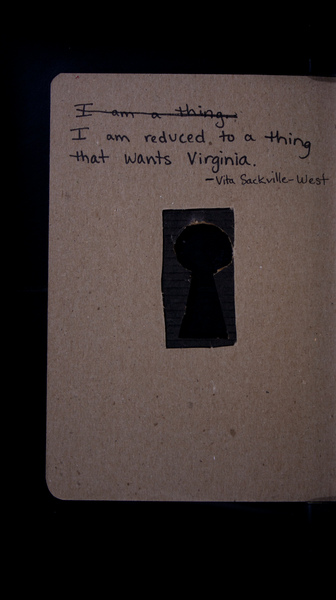 I am a thing.
I am reduced to a thing
that wants Virginia.
-Vita Sackville-West